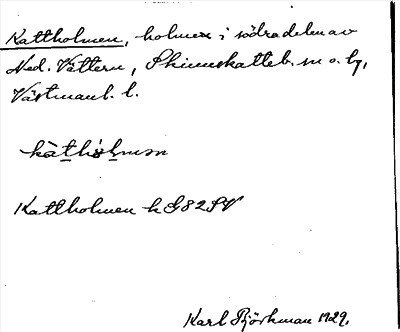 Kattholmen, holmen i södra delen av
Ned. Vättern, Skinnskatteb. sn o. bg,
Västmanl. l.
Kattholmen k G82SV
Karl Björkman 1929.